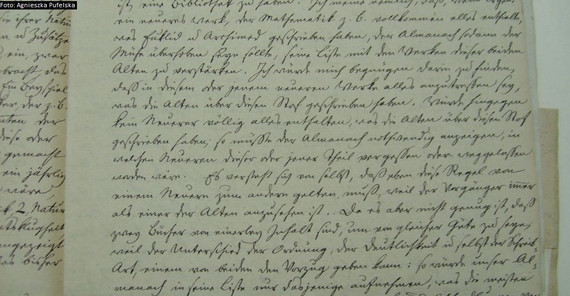 Foto: Agnieszka Pufelska
ist, eine Bibliothek zu haben. Ich meine nemlich, daß, wenn irgend
ein neueres Werk, der Mathematik z. b. vollkommen alles enthielte,
was Euklid u Archimed geschrieben haben, der Almanach sodann der
Mühe überhoben seyn sollte, seine Liste mit den Werken dieser beiden
Alten zu verstärken. Ich würde mich begnügen darin zu finden,
daß in diesem oder jenem neueren Werke alles anzutreffen sey,
was die Alten über diesen Stof geschrieben haben. Würde hingegen
kein Neuerer völlig alles enthalten, was die Alten über diesen Stof
geschrieben haben, so müßte der Almanach nothwendig anzeigen, in
welchen Neueren dieser oder jener Theil vergessen oder weggelassen
worden wäre. Es versteht sich von selbst, daß eben diese Regel von
einem Neuern zum andern gelten muß, weil der Vorgänger immer
als einer der Alten anzusehen ist. Da es aber nicht genug ist, daß
zwey Bücher von einerley Inhalt sind, um von gleicher Güte zu seyn,
weil der Unterschied der Ordnung, der Deutlichkeit u selbst der Schreib-
Art, einem von beiden den Vorzug geben kann: so würde unser Al-
manach in seine Liste nur dasjenige aufnehmen, was die meisten
ihrer Natur
u Zusätze
ein zwar
bracht, daß
Ein Beyspiel
der, z. b.
diese oder
gemacht
ein jährlich
wäre
2 Natur
angezeigt
was bisher